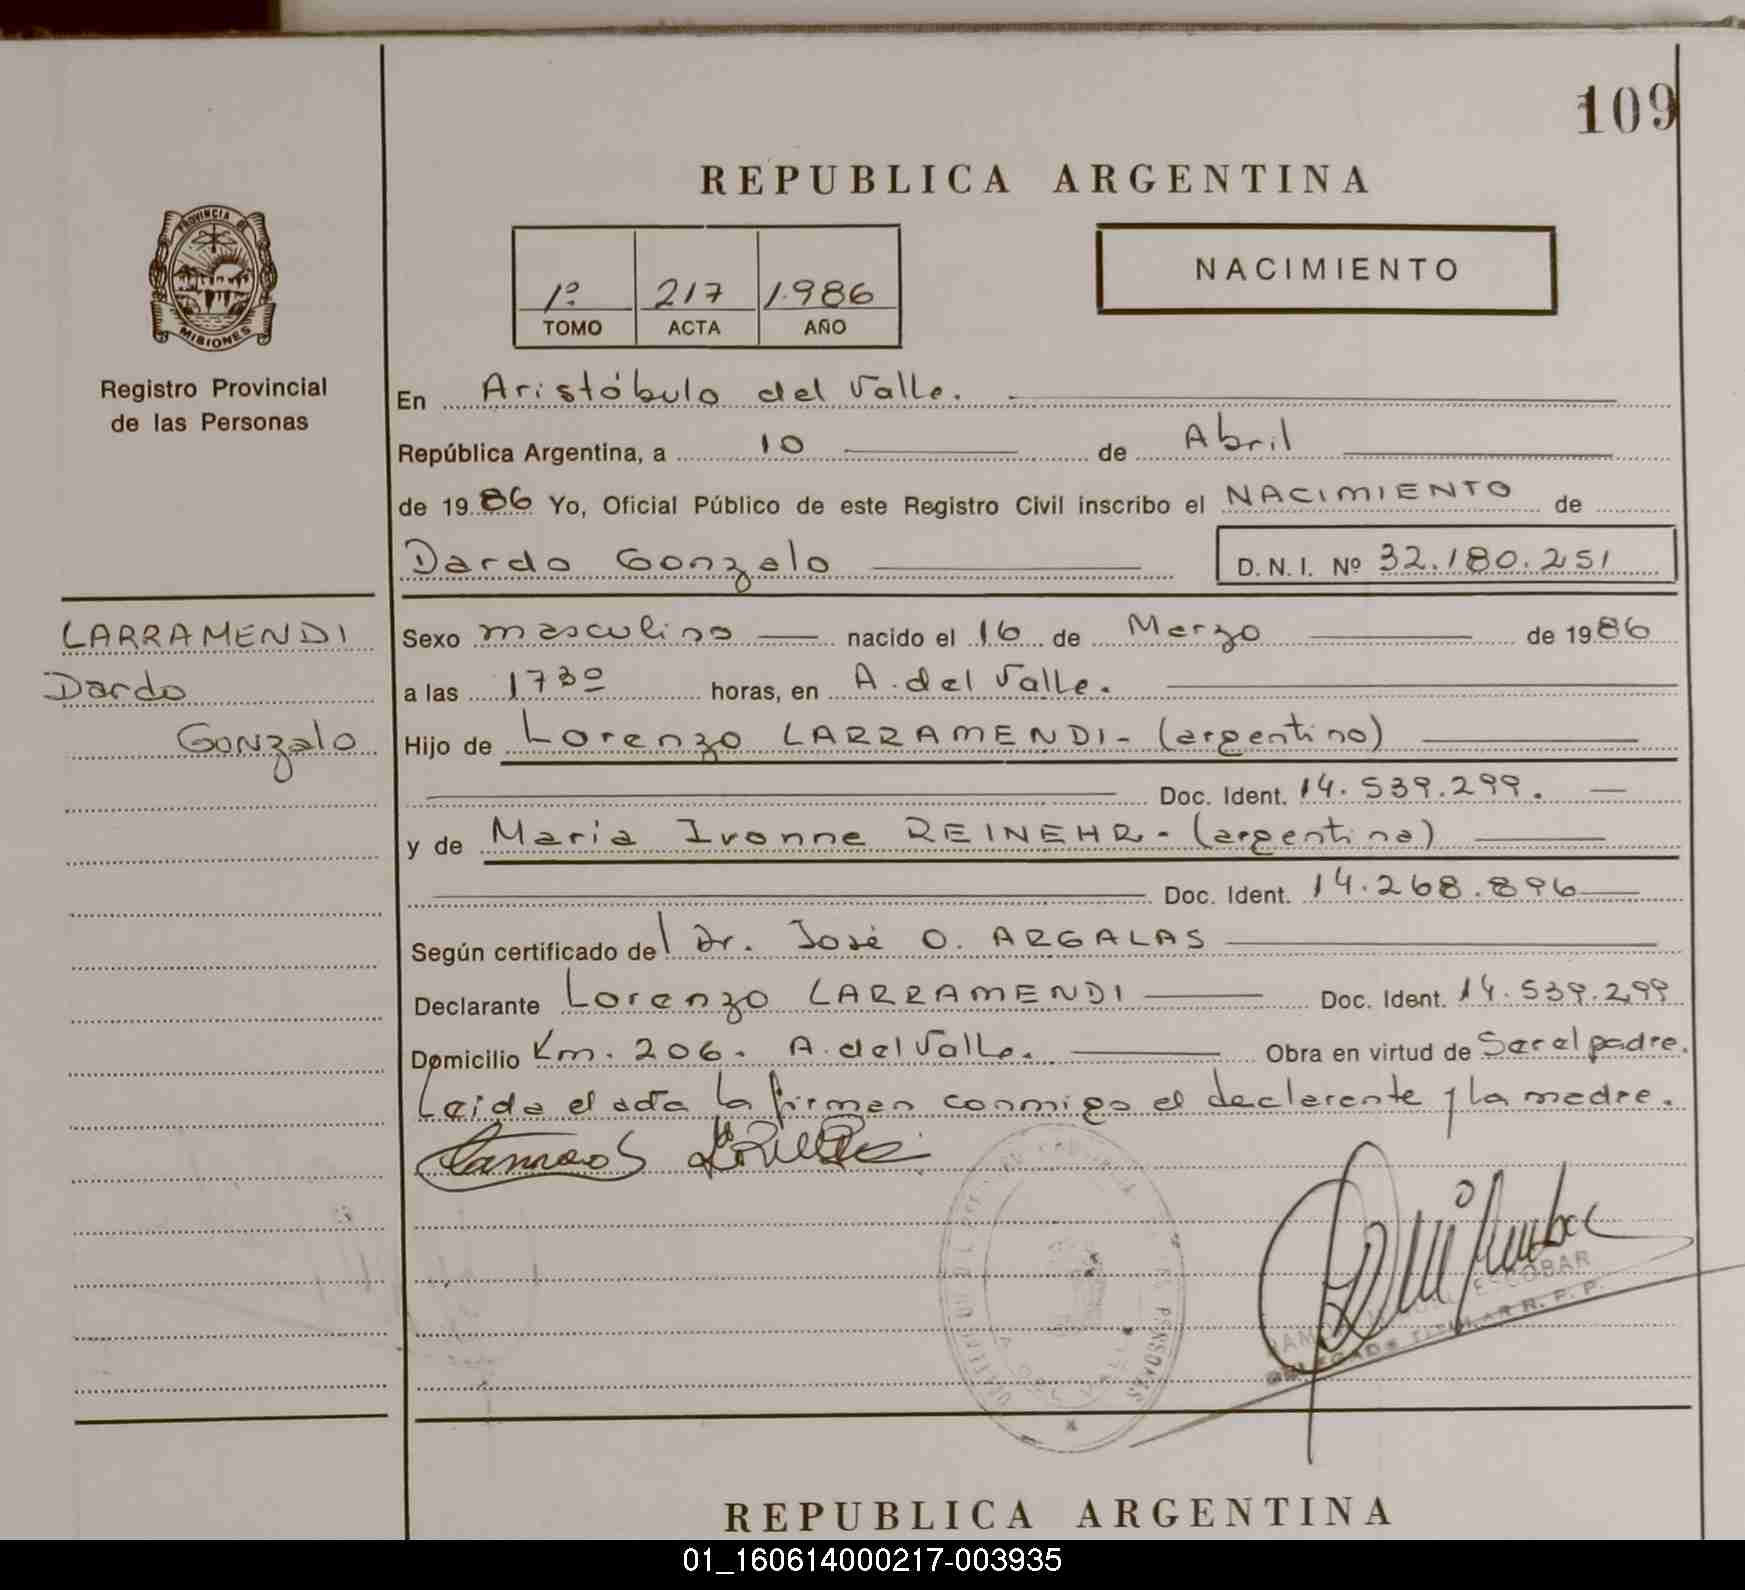 109
REPUBLICA ARGENTINA
PROVINCIA DE
MISIONES
Registro Provincial
de las Personas
1º 217 1.986
TOMO ACTA AÑO
NACIMIENTO
En Aristóbulo del Valle.
República Argentina, a 10 de Abril
de 1986 Yo, Oficial Público de este Registro Civil inscribo el NACIMIENTO de
Dardo Gonzalo D.N.I. Nº 32.180.251
LARRAMENDI
Dardo
Gonzalo
Sexo masculino nacido el 16 de Marzo de 1986
a las 17 30 horas, en A. del Valle.
Hijo de Lorenzo LARRAMENDI - (argentino)
Doc. Ident. 14.539.299.
y de Maria Ivonne REINEHR - (argentina)
Doc. Ident. 14.268.896
Según certificado del Dr. José O. ARGALAS
Declarante Lorenzo LARRAMENDI Doc. Ident. 14.539.299
Domicilio Km. 206. A. del Valle. Obra en virtud de Ser el padre.
Leida el acta la firman conmigo el declarante y la madre.
ESCOBAR
DELEGADO TITULAR R. P. P.
REPUBLICA ARGENTINA
01_160614000217-003935